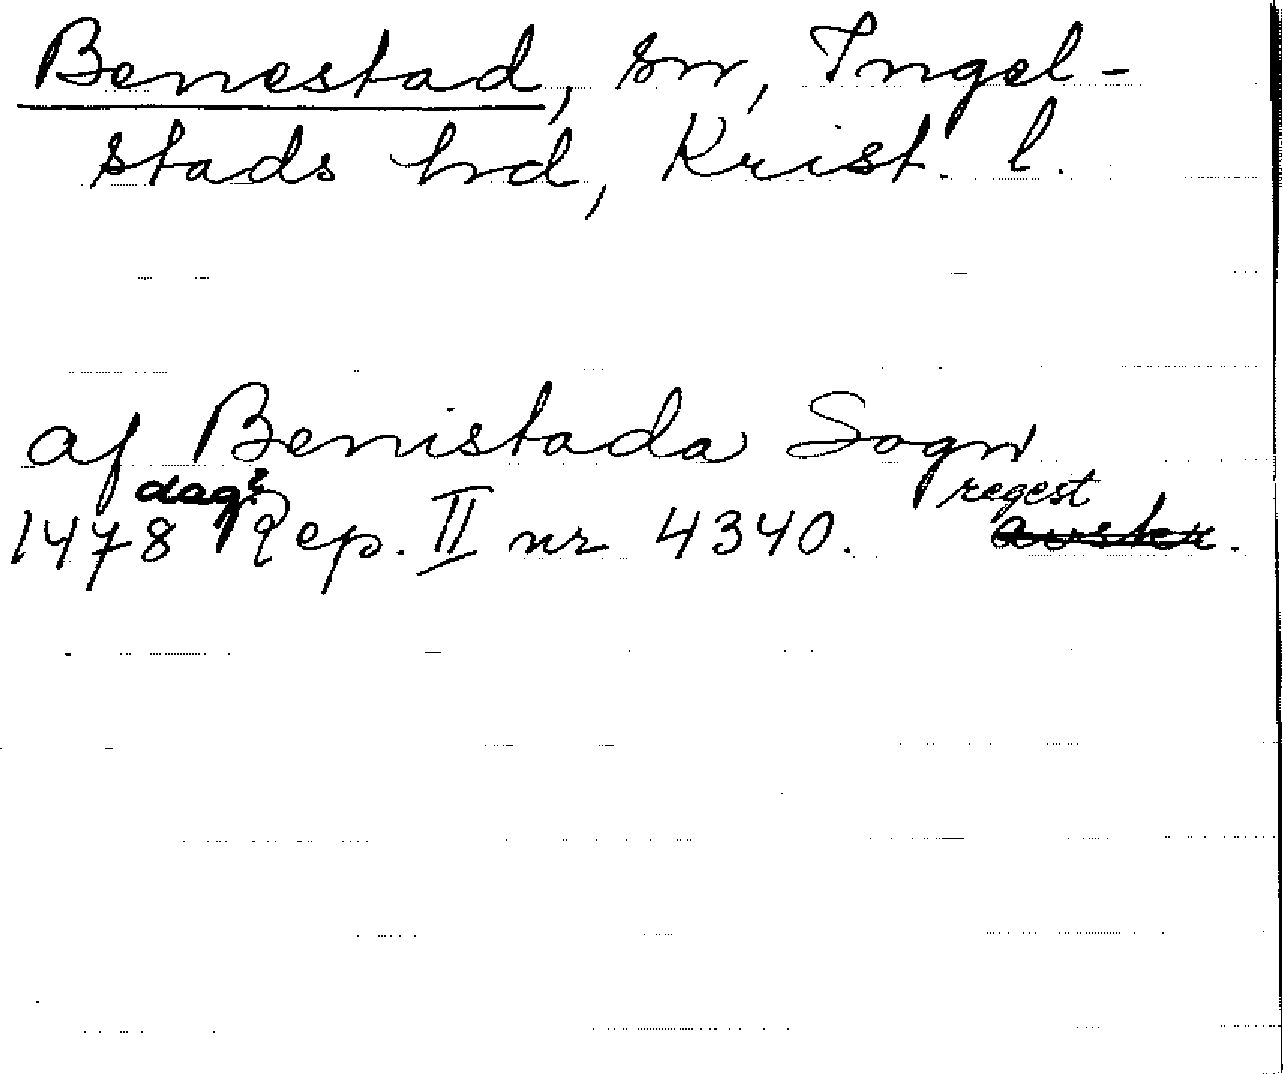 Benestad, sn, Ingel-
stads hd, Krist. l.
af Benistada Sogn
dag? regest
1478 Rep. II nr 4340. avskr.